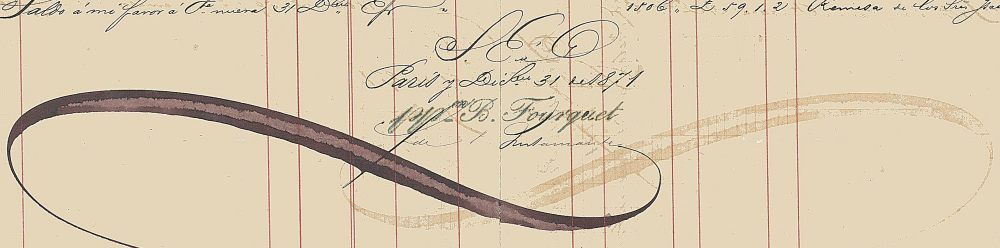 Saldo á mi favor á Cta nueva 31 Dbre 1506 " £ 59.1.2 Remesa de los Sres
S. E. ú O.
Paris y Dicbre 31 de 1871
B. Fourquet
de